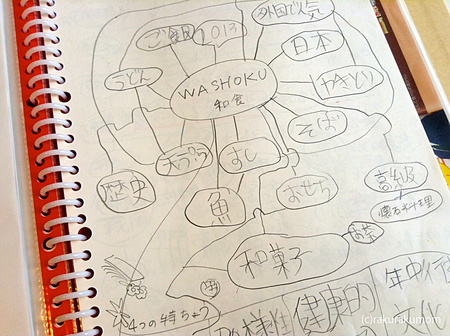 外国で人気
2013
日本
うどん
WASHOKU
和食
やきとり
そば
天ぷら
すし
歴史
魚
おせち
高級
懐石料理
お茶
和菓子
4つの特ちょう
多様性
健康的
年中行
(c)rakurakumom